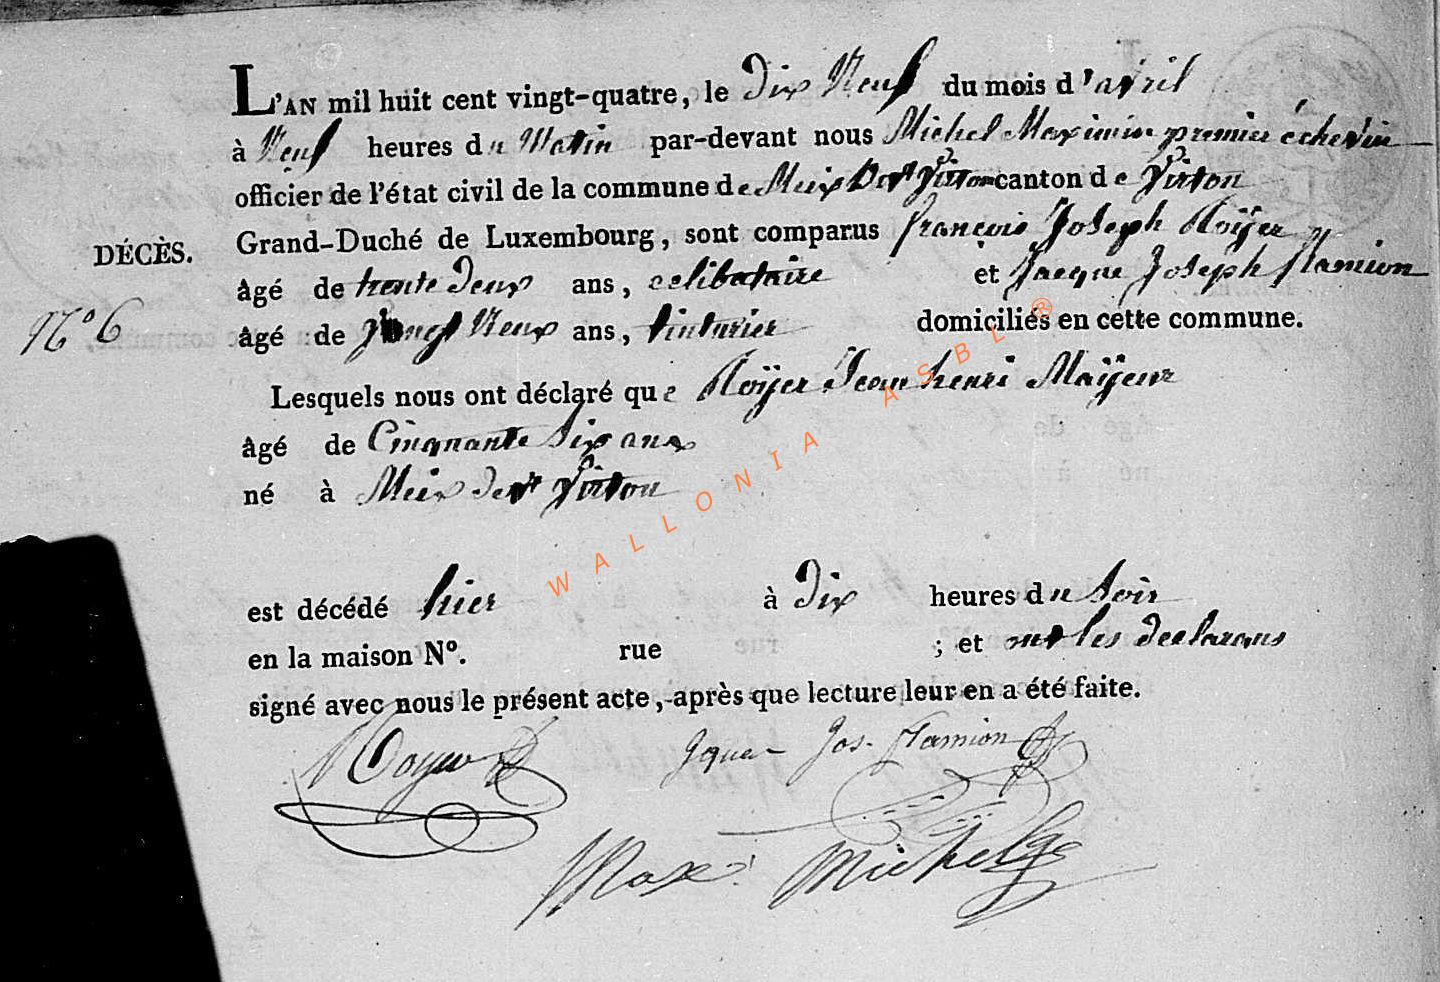 L'AN mil huit cent vingt-quatre, le Dix Neuf du mois d'avril
à Neuf heures du Matin par-devant nous Michel Maximin premier échevin
officier de l'état civil de la commune de Meix Devt Virton canton de Virton
DÉCÈS. Grand-Duché de Luxembourg, sont comparus françois Joseph Roÿer
âgé de trente Deux ans, celibataire et Jacque Joseph flamion
N° 6 âgé de Vingt Neux ans, tinturier domiciliés en cette commune.
Lesquels nous ont déclaré que Roÿer Jean henri Maÿeur
âgé de Cinquante Six ans
né à Meix devt Virton
est décédé hier à Dix heures du Soir
en la maison N°. rue ; et ont les declarans
signé avec nous le présent acte, après que lecture leur en a été faite.
Royer Jque Jos. Flamion
Max: Michel
WALLONIA ASBL ®